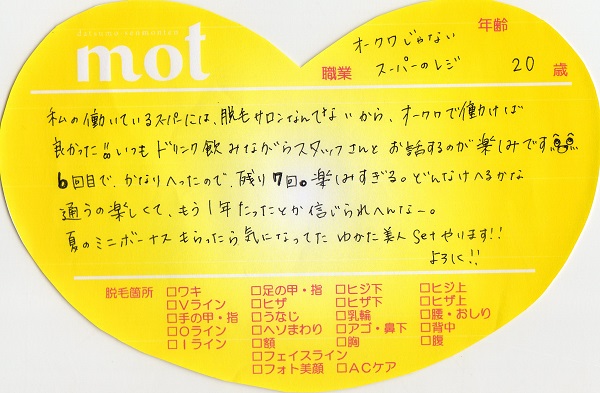 datsumo/esumanico
mot
年齢
オークワじゃない
職業 スーパーのレジ 20 歳
私の働いているスーパーには、脱毛サロンなんてないから、オークワで働けば
良かった!!いつもドリンク飲みながらスタッフさんとお話するのが楽しみです
6回目で、かなりへったので、残り7回。楽しみすぎる。どんなけへるかな
通うの楽しくて、もう1年たったとか信じられへんなー。
夏のミニボーナスもらったら気になってた ゆかた美人setやります!!
よろしく!!
脱毛箇所 □ワキ □足の甲・指 □ヒジ下 □ヒジ上
□Vライン □ヒザ □ヒザ下 □ヒザ上
□手の甲・指 □うなじ □乳輪 □腰・おしり
□Oライン □ヘソまわり □アゴ・鼻下 □背中
□Iライン □額 □胸 □腹
□フェイスライン
□フォト美顔 □ACケア